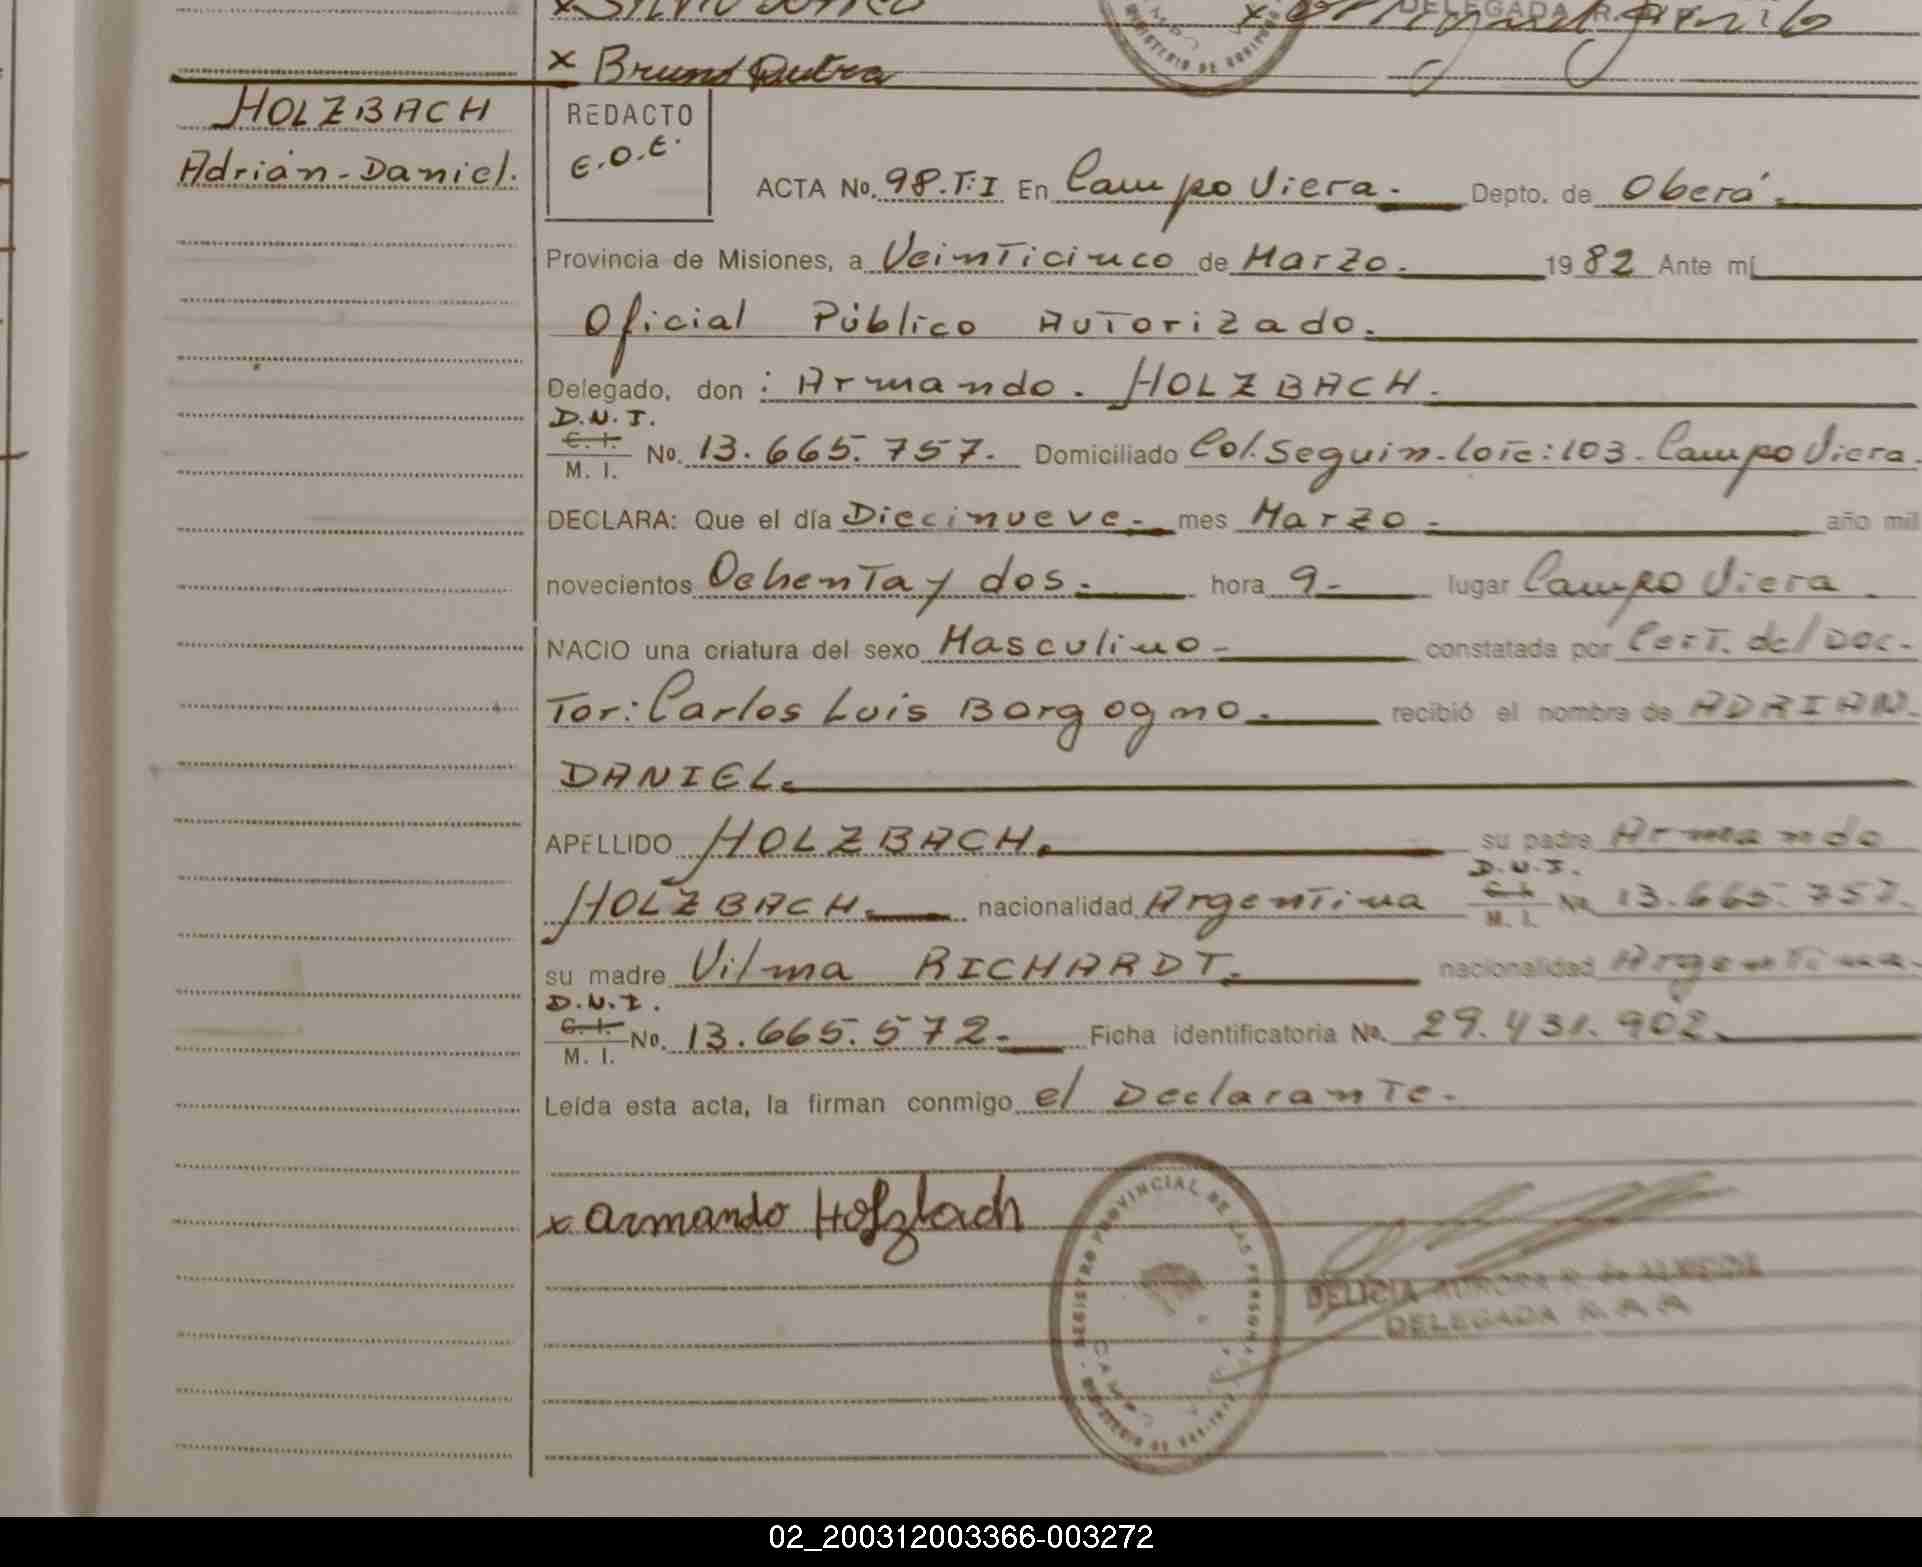 x Bruno Dutra
HOLZBACH
Adrián-Daniel.
REDACTO
E.O.E.
ACTA No. 98.T:I En Campo Viera. Depto. de Oberá.
Provincia de Misiones, a Veinticinco de Marzo. 1982 Ante mí
Oficial Público Autorizado.
Delegado, don: Armando. HOLZBACH.
D.N.I.
C. I.
M. I. No. 13.665.757. Domiciliado Col. Seguin-lote:103-Campo Viera.
DECLARA: Que el día Diecinueve- mes Marzo- año mil
novecientos Ochenta y dos. hora 9- lugar Campo Viera.
NACIO una criatura del sexo Masculino- constatada por Cert. del Doc-
tor: Carlos Luis Borgogno. recibió el nombre de ADRIAN.
DANIEL.
APELLIDO HOLZBACH. su padre Armando
D.N.I.
HOLZBACH. nacionalidad Argentina C. I. M. I. No. 13.665.757.
su madre Vilma RICHARDT. nacionalidad Argentina.
D.N.I.
C. I.
M. I. No. 13.665.572. Ficha identificatoria No. 29.431.902.
Leída esta acta, la firman conmigo el Declarante.
x Armando Holzbach
REGISTRO PROVINCIAL DE LAS PERSONAS
DELICIA AURORA R. de ALMEIDA
DELEGADA
02_200312003366-003272